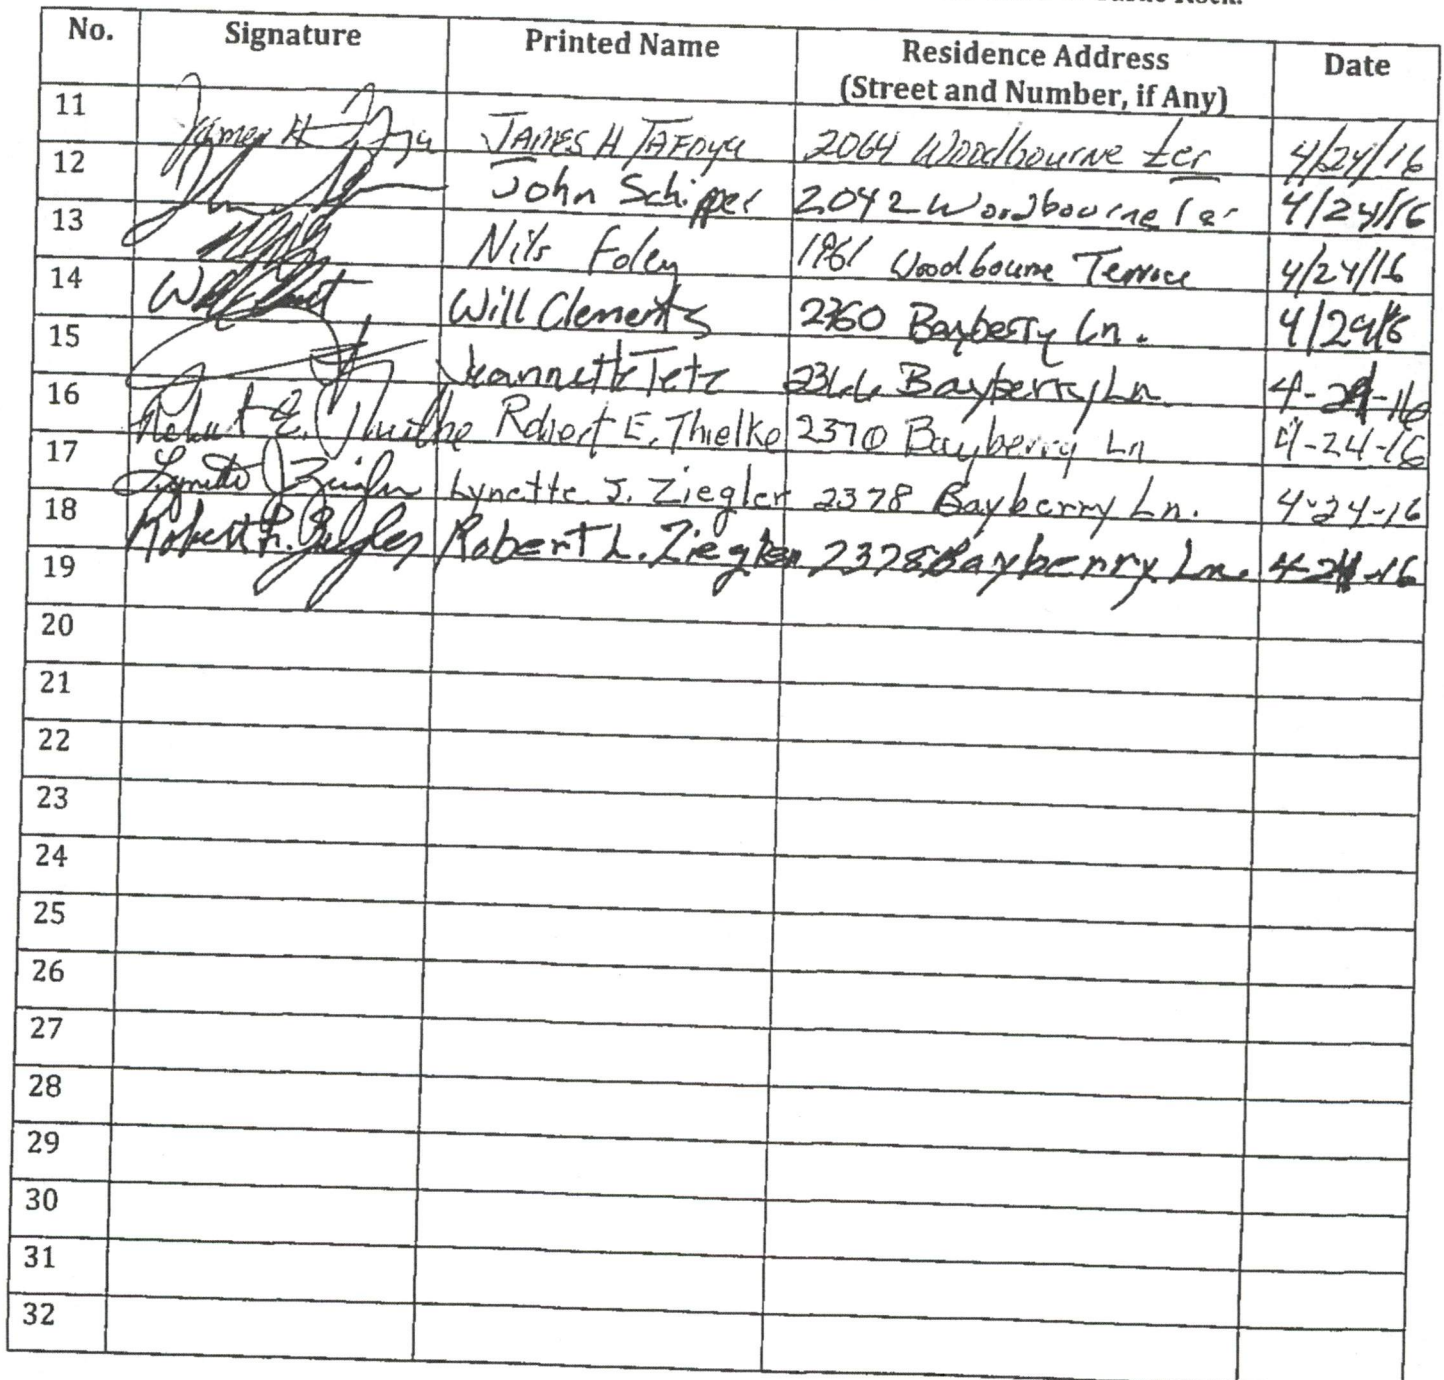 No. Signature Printed Name Residence Address Date
(Street and Number, if Any)
11 James H JAMES H TAFOYA 2064 Woodbourne ter 4/24/16
12 John Schipper 2042 Woodbourne Ter 4/24/16
13 Nils Foley 1961 Woodbourne Terrace 4/24/16
14 Will Clements 2360 Bayberry Ln. 4/24/16
15 Jeannette Tetz 2366 Bayberry Ln 4-24-16
16 Robert E. Thielke Robert E. Thielke 2370 Bayberry Ln 4-24-16
17 Lynette J. Ziegler Lynette J. Ziegler 2378 Bayberry Ln. 4-24-16
18 Robert L. Ziegler Robert L. Ziegler 2378 Bayberry Ln. 4-24-16
19
20
21
22
23
24
25
26
27
28
29
30
31
32